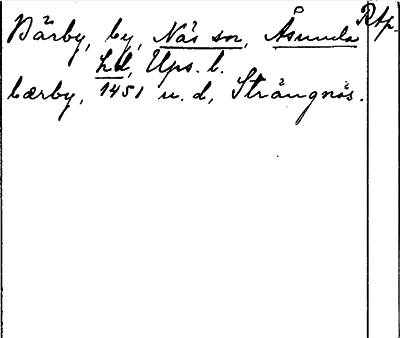 Bärby, by, Näs sn, Åsunda Rtp.
hd, Ups. l.
bærby, 1451 u. d, Strängnäs.